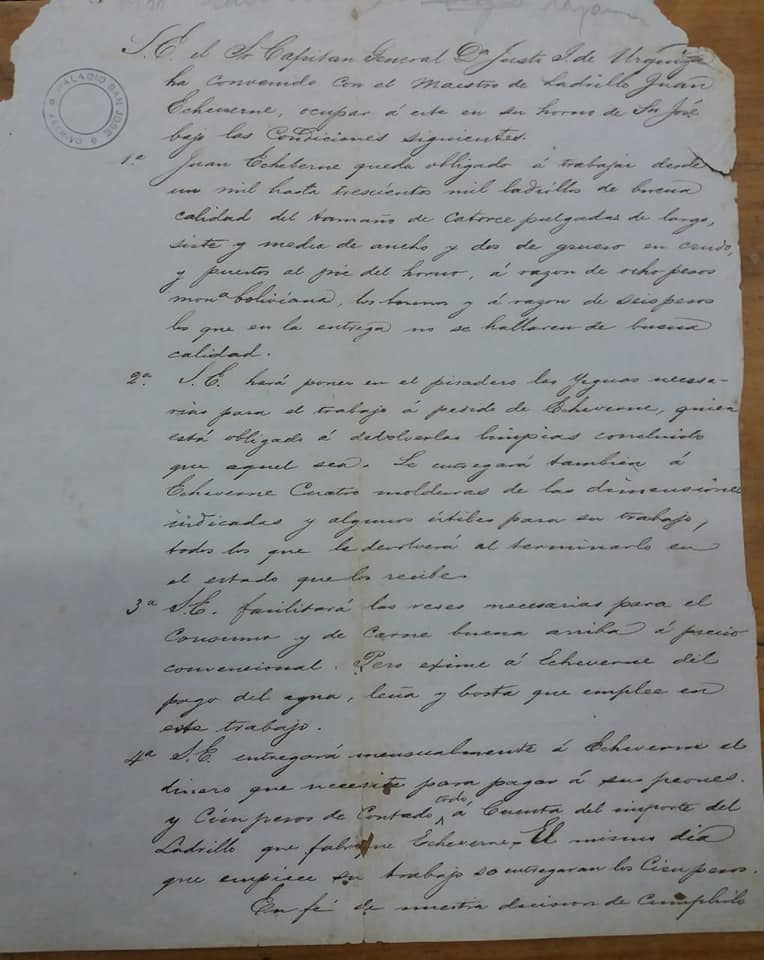 S. E. el Sr Capitan General Dn Justo J. de Urquiza
ha convenido con el Maestro de Ladrillo Juan
Echeverne, ocupar á este en su horno de Sn José
bajo las Condiciones siguientes.
PALACIO SAN JOSE
1.a Juan Echeberne queda obligado á trabajar desde
un mil hasta trescientos mil ladrillos de buena
calidad del tamaño de catorce pulgadas de largo,
siete y media de ancho y dos de grueso en crudo,
y puestos al pié del horno, á razon de ocho pesos
mona boliviana, los buenos y á razon de seis pesos
los que en la entrega no se hallaren de buena
calidad.
2a. S. E. hará poner en el pisadero las Yeguas necesa-
rias para el trabajo á pedido de Echeverne, quien
está obligado á debolverlas limpias concluido
que aquel sea. Se entregará tambien á
Echeverne Cuatro molduras de las dimensiones
indicadas y algunos útiles para su trabajo,
todos los que le devolverá al terminarlo en
el estado que los recibe.
3a S. E. facilitará las reses necesarias para el
Consumo y de Carne buena arriba á precio
convencional. Pero exime á Echeverne del
pago del agua, leña y bosta que emplee en
este trabajo.
4a S. E. entregará mensualmente á Echeverne el
dinero que necesite para pagar á sus peones.
y Cien pesos de Contado, todo á Cuenta del importe del
Ladrillo que fabrique Echeverne. El mismo dia
que empiece su trabajo se entregaran los Cien pesos.
En fé de nuestra decision de Cumplirlo